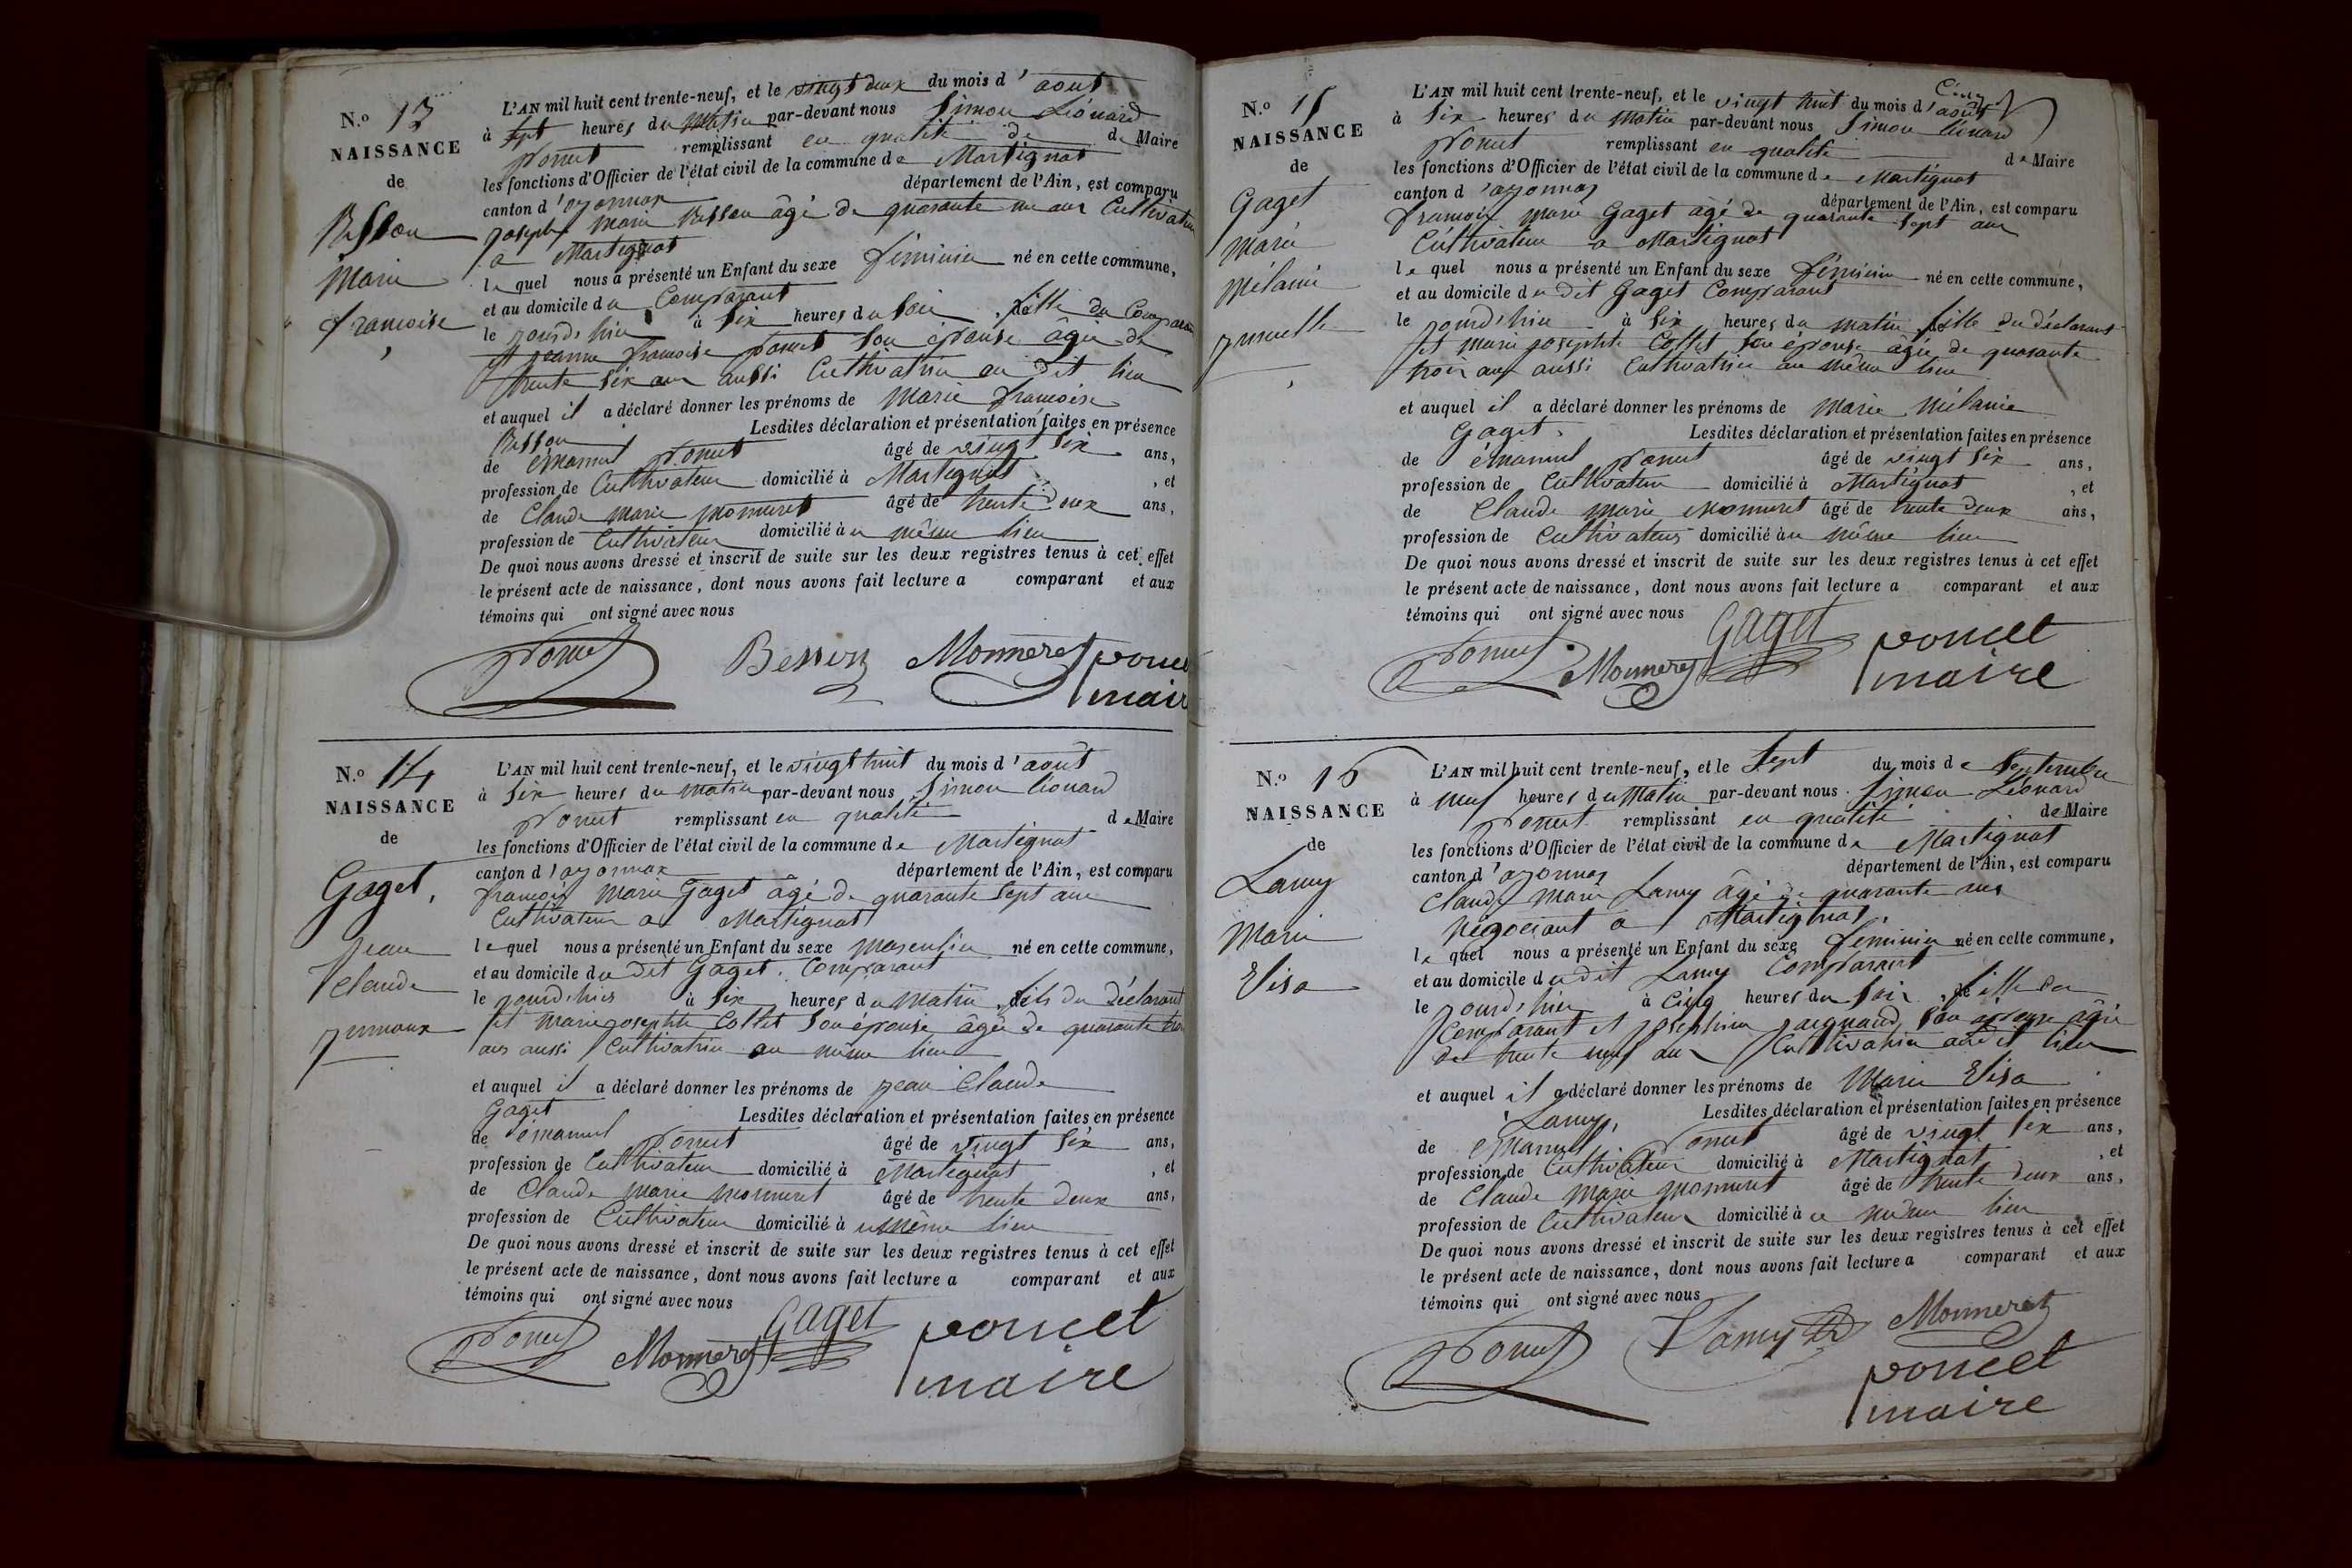 N.o 13
NAISSANCE
de
Besson
Marie
françoise
L'AN mil huit cent trente-neuf, et le vingt deux du mois d'aout
à sept heures du matin par-devant nous Simon Léonard
Poncet remplissant en qualité de de Maire
les fonctions d'Officier de l'état civil de la commune de Martignat
canton d'oyonnax département de l'Ain, est comparu
joseph Marie Besson âgé de quarante un ans Cultivateur
a Martignat
le quel nous a présenté un Enfant du sexe féminin né en cette commune,
et au domicile du Comparant
le jourd'hui à six heures du soir, fille du Comparant
et jeanne françoise Poncet son épouse âgée de
trente six ans aussi Cultivatrice au dit lieu
et auquel il a déclaré donner les prénoms de Marie françoise
Besson Lesdites déclaration et présentation faites en présence
de émanuel Poncet âgé de vingt six ans,
profession de Cultivateur domicilié à Martignat, et
de Claude marie monneret âgé de trente deux ans,
profession de Cultivateur domicilié à u même lieu
De quoi nous avons dressé et inscrit de suite sur les deux registres tenus à cet effet
le présent acte de naissance, dont nous avons fait lecture a comparant et aux
témoins qui ont signé avec nous
Poncet Besson Monneret poncet
maire
N.o 14
NAISSANCE
de
Gaget,
jean
Claude
jumeaux
L'AN mil huit cent trente-neuf, et le vingt huit du mois d'aout
à six heures du matin par-devant nous Simon léonard
Poncet remplissant en qualité de Maire
les fonctions d'Officier de l'état civil de la commune de Martignat
canton d'oyonnax département de l'Ain, est comparu
françois Marie Gaget âgé de quarante sept ans
Cultivateur a Martignat
le quel nous a présenté un Enfant du sexe masculin né en cette commune,
et au domicile du dit Gaget. Comparant
le jourd'hui à six heures du matin, fils du déclarant
et marie josephte Collet son épouse âgée de quarante trois
ans aussi Cultivatrice au même lieu
et auquel il a déclaré donner les prénoms de jean Claude
Gaget Lesdites déclaration et présentation faites en présence
de émanuel Poncet âgé de vingt six ans,
profession de Cultivateur domicilié à Martignat, et
de Claude marie monneret âgé de trente deux ans,
profession de Cultivateur domicilié à u même lieu
De quoi nous avons dressé et inscrit de suite sur les deux registres tenus à cet effet
le présent acte de naissance, dont nous avons fait lecture a comparant et aux
témoins qui ont signé avec nous
Poncet Monneret Gaget poncet
maire
N.o 15
NAISSANCE
de
Gaget
Marie
Mélanie
jumelle
L'AN mil huit cent trente-neuf, et le vingt huit du mois d'août
à six heures du matin par-devant nous Simon léonard
Poncet remplissant en qualité de Maire
les fonctions d'Officier de l'état civil de la commune de Martignat
canton d'oyonnax département de l'Ain, est comparu
françois marie Gaget âgé de quarante sept ans
Cultivateur a Martignat
le quel nous a présenté un Enfant du sexe féminin né en cette commune,
et au domicile du dit Gaget Comparant
le jourd'hui à six heures du matin, fille du déclarant
et marie josephte Collet son épouse âgée de quarante
trois ans aussi Cultivatrice au même lieu
et auquel il a déclaré donner les prénoms de Marie mélanie
Gaget. Lesdites déclaration et présentation faites en présence
de émanuel Poncet âgé de vingt six ans,
profession de Cultivateur domicilié à Martignat, et
de Claude marie monneret âgé de trente deux ans,
profession de Cultivateur domicilié à u même lieu
De quoi nous avons dressé et inscrit de suite sur les deux registres tenus à cet effet
le présent acte de naissance, dont nous avons fait lecture a comparant et aux
témoins qui ont signé avec nous
Poncet Monneret Gaget poncet
maire
N.o 16
NAISSANCE
de
Lamy
Marie
Elisa
L'AN mil huit cent trente-neuf, et le sept du mois de septembre
à neuf heures du matin par-devant nous Simon Léonard
Poncet remplissant en qualité de Maire
les fonctions d'Officier de l'état civil de la commune de Martignat
canton d'oyonnax département de l'Ain, est comparu
Claude marie Lamy âgé de quarante un
Négociant a Martignat,
le quel nous a présenté un Enfant du sexe féminin né en cette commune,
et au domicile du dit Lamy Comparant
le jourd'hui à cinq heures du soir, fille du
Comparant et josephine son épouse âgée
de trente neuf ans Cultivatrice au dit lieu
et auquel il a déclaré donner les prénoms de Marie Elisa
Lamy, Lesdites déclaration et présentation faites en présence
de émanuel Poncet âgé de vingt six ans,
profession de Cultivateur domicilié à Martignat, et
de Claude marie monneret âgé de trente deux ans,
profession de Cultivateur domicilié à u même lieu
De quoi nous avons dressé et inscrit de suite sur les deux registres tenus à cet effet
le présent acte de naissance, dont nous avons fait lecture a comparant et aux
témoins qui ont signé avec nous
Poncet Lamy Monneret
poncet
maire